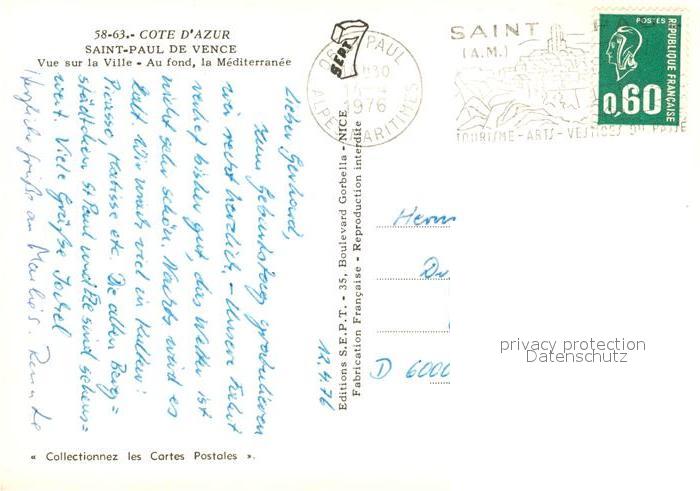 58-63.- COTE D'AZUR
SAINT-PAUL DE VENCE
Vue sur la Ville - Au fond, la Méditerranée
SEPT
PAUL
1976
ALPES MARITIMES
SAINT
(A.M.)
TOURISME-ARTS-VESTIGES DU PASSE
POSTES
REPUBLIQUE FRANÇAISE
0,60
12.4.76
Lieber Gerhard,
zum Geburtstag gratulieren
wir recht herzlich. - Unsere Fahrt
verlief bisher gut, das Wetter ist
nicht sehr schön. Nachts wird es
kalt. Wir machen viel in Kultur:
Picasso, Matisse etc. Die alten Berg=
städtchen St Paul und Eze sind sehens=
wert. Viele Grüße
Herzliche Grüße an
Editions S.E.P.T. - 35, Boulevard Gorbella - NICE
Fabrication Française - Reproduction interdite
Herrn
D 6000
privacy protection
Datenschutz
« Collectionnez les Cartes Postales ».